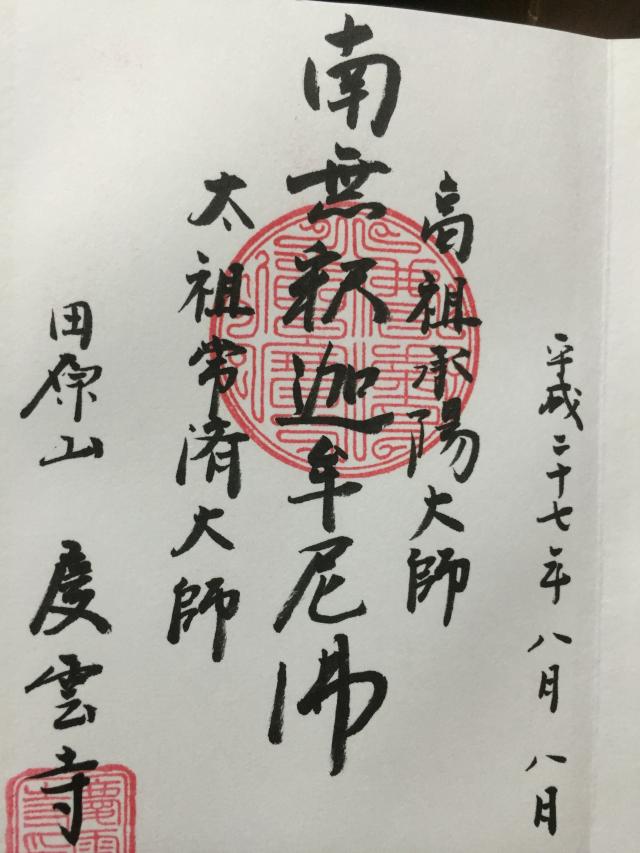 平成二十七年 八月 八月
高祖承陽大師
南無釈迦牟尼佛
太祖常済大師
田原山 慶雲寺